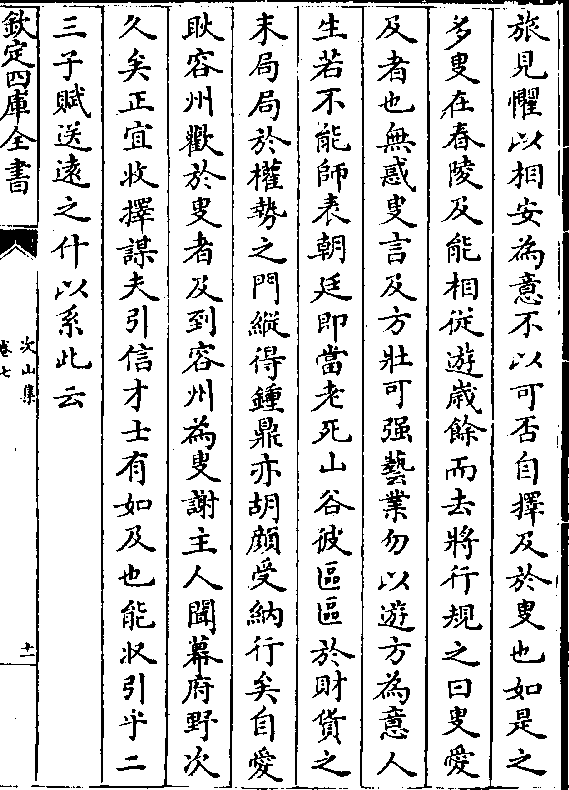 旅見懼以相安為意不以可否自擇及於叟也如是之
多叟在舂陵及能相從遊歲餘而去將行規之曰叟愛
及者也無惑叟言及方壯可强藝業勿以遊方為意人
生若不能師表朝廷即當老死山谷彼區區於財貨之
末局局於權勢之門縱得鍾鼎亦胡顔受納行矣自愛
耿容州歡於叟者及到容州為叟謝主人聞幕府野次
久矣正宜收擇謀夫引信才士有如及也能収引乎二
三子賦送遠之什以系此云
欽定四庫全書
次山集
卷七
十一